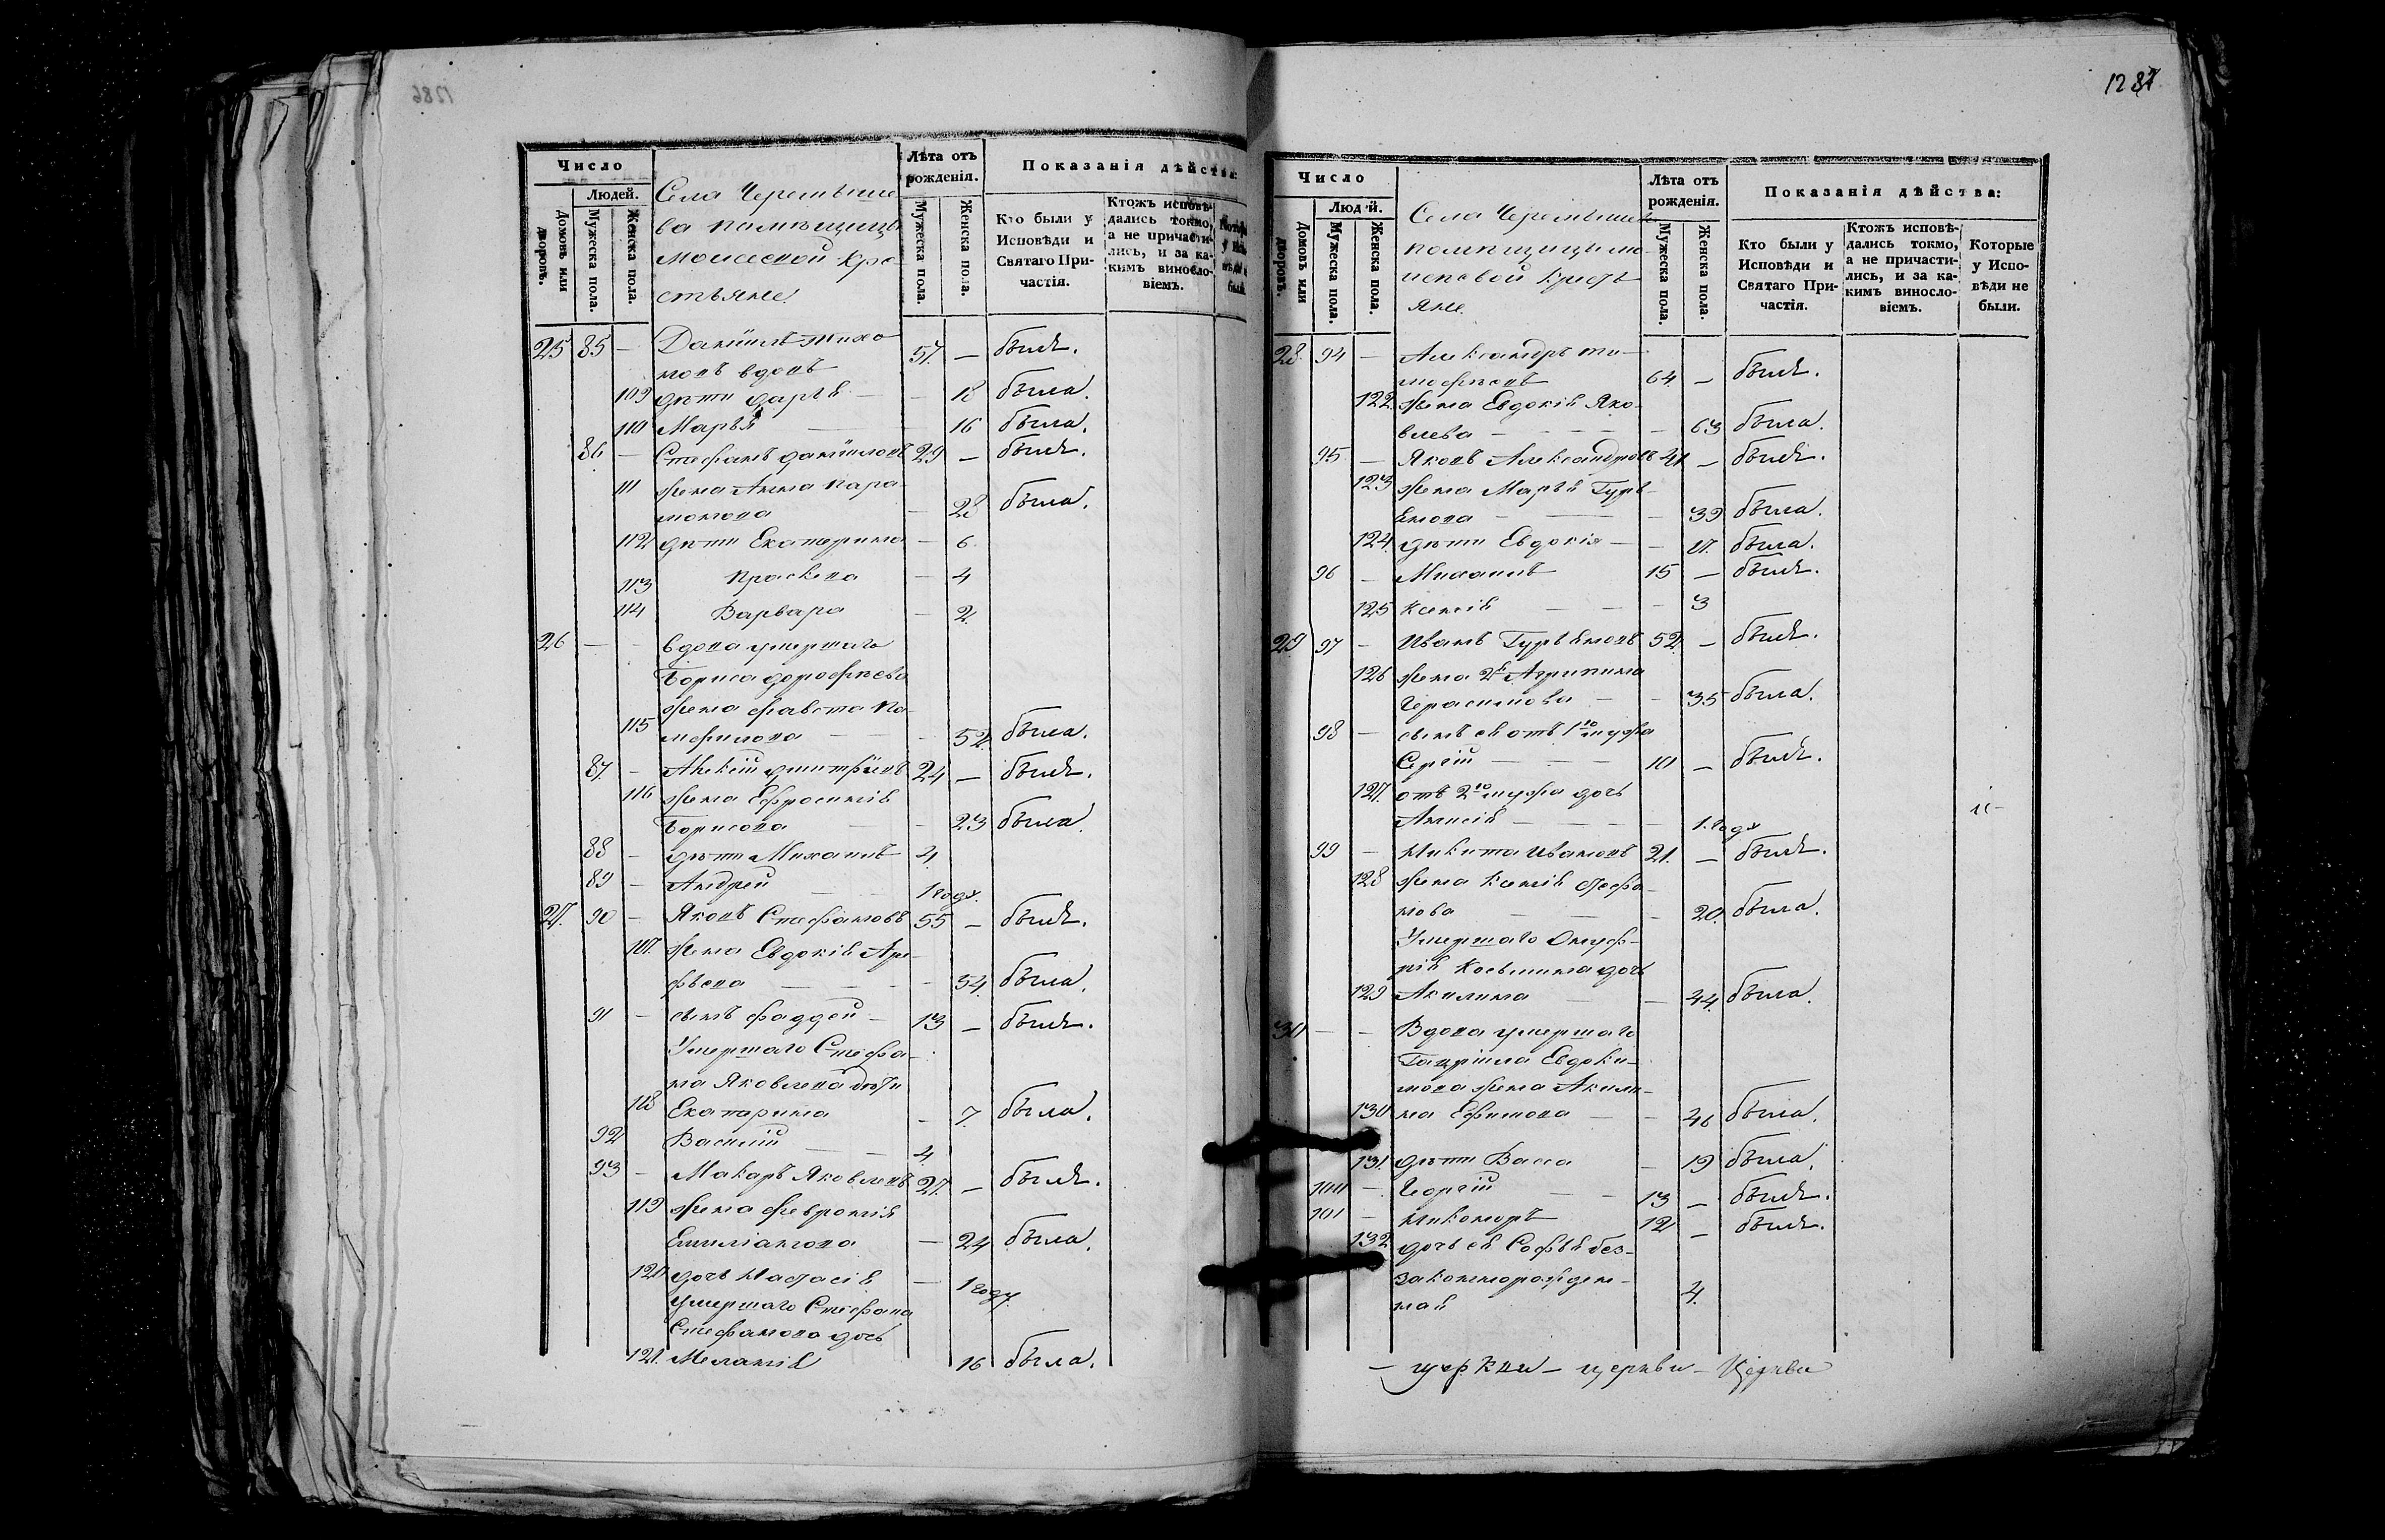 1286
Число
Людей.
Домовъ или дворовъ.
Мужеска пола.
Женска пола.
Села Черемыше
ва помѣщицы
Моисеевой кре
стьяне
Лѣта отъ рожденія.
Мужеска пола.
Женска пола.
Показанія дѣйства:
Кто были у Исповѣди и Святаго Причастія.
Ктожъ исповѣдались токмо, а не причастились, и за какимъ винословіемъ.
25 85 — Даніилъ Тихо
новъ вдовъ 57. — былъ.
109 дѣти Дарья — 18 была.
110 Марья — 16 была.
86 — Стефанъ Даніиловъ 29 — былъ.
111 жена Анна Пара
монова — 28 была.
112 дѣти Екатерина — 6
113 Праскева — 4
114 Варвара — 2
26 — — вдова умершаго
Бориса Дорофѣева
жена Фавста Па
115 мфилова — 52 была.
87. — Алексій Дмитріевъ 24 — былъ.
116 жена Ефросинія
Борисова — 23 была.
88 — дѣти Михаилъ 4
89 — Андрей 1 годъ.
27. 90 — Яковъ Стефановъ 55 — былъ.
117. жена Евдокія Аре
фьева — 54. была.
91 — сынъ Фаддей 13 — былъ.
Умершаго Стефа
на Яковлева дѣти
118 Екатерина — 7. была.
92 Василій — 4
93 — Макаръ Яковлевъ 27. — былъ.
119 жена Феврония
Емиліанова — 24 была.
120 дочь Настасія — 1 году
умершаго Стефана
Стефанова дочь
121. Меланія 16 была.
1287
Число
Людей.
Домовъ или дворовъ.
Мужеска пола.
Женска пола.
Села Черемышева
помѣщицы Мо
исеевой кресть
яне.
Лѣта отъ рожденія.
Мужеска пола.
Женска пола.
Показанія дѣйства:
Кто были у Исповѣди и Святаго Причастія.
Ктожъ исповѣдались токмо, а не причастились, и за какимъ винословіемъ.
Которые у Исповѣди не были.
28. 94 — Александръ Ти
мофѣевъ 64 — былъ.
122. жена Евдокія Яко
влева — 63 была.
95 — Яковъ Александровъ 41 — былъ.
123 жена Марья Гурь
янова — 39 была.
124. дѣти Евдокія — 17. была.
96 — Михаилъ 15 — былъ.
125 Ксенія — 3
29 97 — Иванъ Гурьяновъ 52 — былъ.
126 жена 2я Агрипина
Герасимова — 35 была.
98 — сынъ ея отъ 1го мужа
Сергій — 10 — былъ.
127. отъ 2го мужа дочь
Анисія — 1. годъ
99 — Никита Ивановъ 21. — былъ.
128 жена Ксенія Стефа
нова — 20. была.
Умершаго Онуф
рія Козьмина дочь
129 Акилина — 44. была.
30 — — Вдова умершаго
Гавріила Евдоки
мова жена Акили
130 на Ефимова — 46 была.
131. дѣти Васса — 19 была.
100 — Георгій 13 — былъ.
101 — Никоноръ 12 — былъ.
132 дочь ея Софья без
законнорожден
ная 4.
— церкви — церкви — Церкви